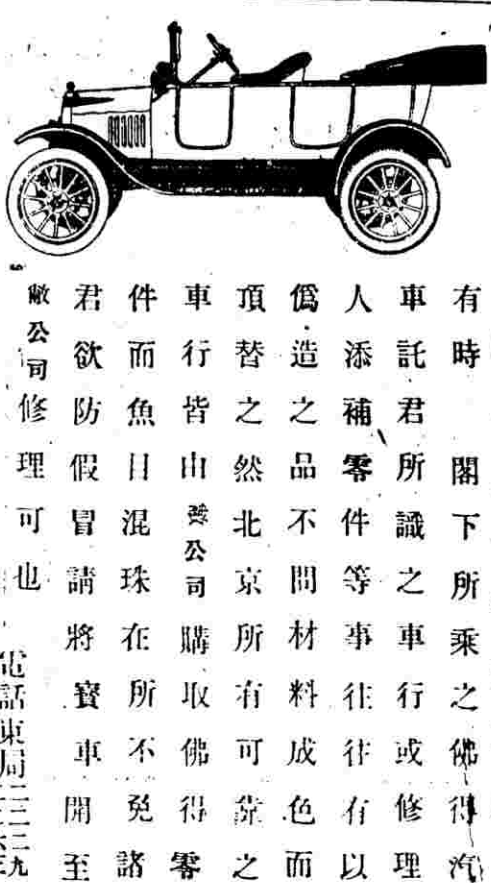 有時　閣下所乘之佛得汽
車託君所識之車行或修理
人添補零件等事往往有以
僞造之品不問材料成色而
頂替之然北京所有可靠之
車行皆由敝公司購取佛得零
件而魚目混珠在所不免諸
君欲防假冒請將寶車開至
敝公司修理可也
電話東局